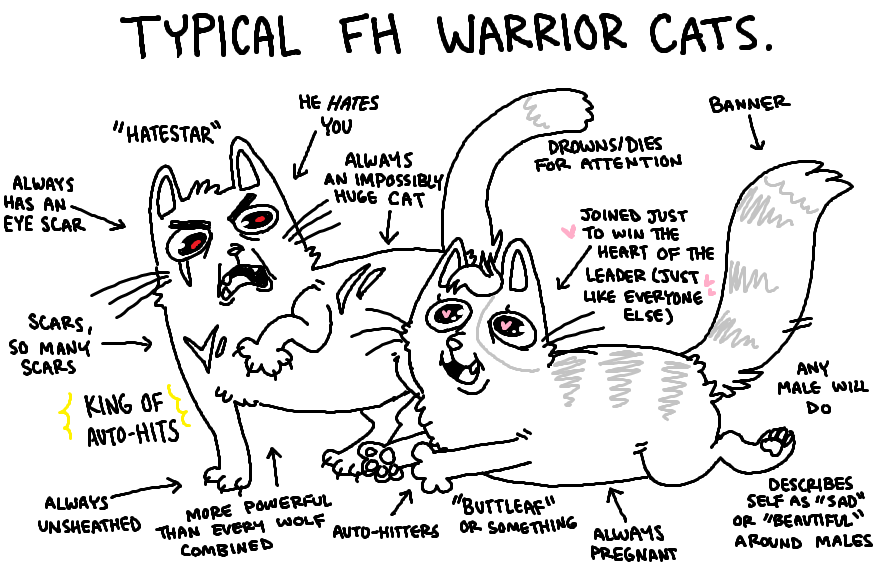 TYPICAL FH WARRIOR CATS.
"HATESTAR"
HE HATES
YOU
ALWAYS
HAS AN
EYE SCAR
ALWAYS
AN IMPOSSIBLY
HUGE CAT
DROWNS/DIES
FOR ATTENTION
BANNER
JOINED JUST
TO WIN THE
HEART OF THE
LEADER (JUST
LIKE EVERYONE
ELSE)
SCARS,
SO MANY
SCARS
{ KING OF }
AUTO-HITS
ANY
MALE WILL
DO
ALWAYS
UNSHEATHED
MORE POWERFUL
THAN EVERY WOLF
COMBINED
AUTO-HITTERS
"BUTTLEAF"
OR SOMETHING
ALWAYS
PREGNANT
DESCRIBES
SELF AS "SAD"
OR "BEAUTIFUL"
AROUND MALES